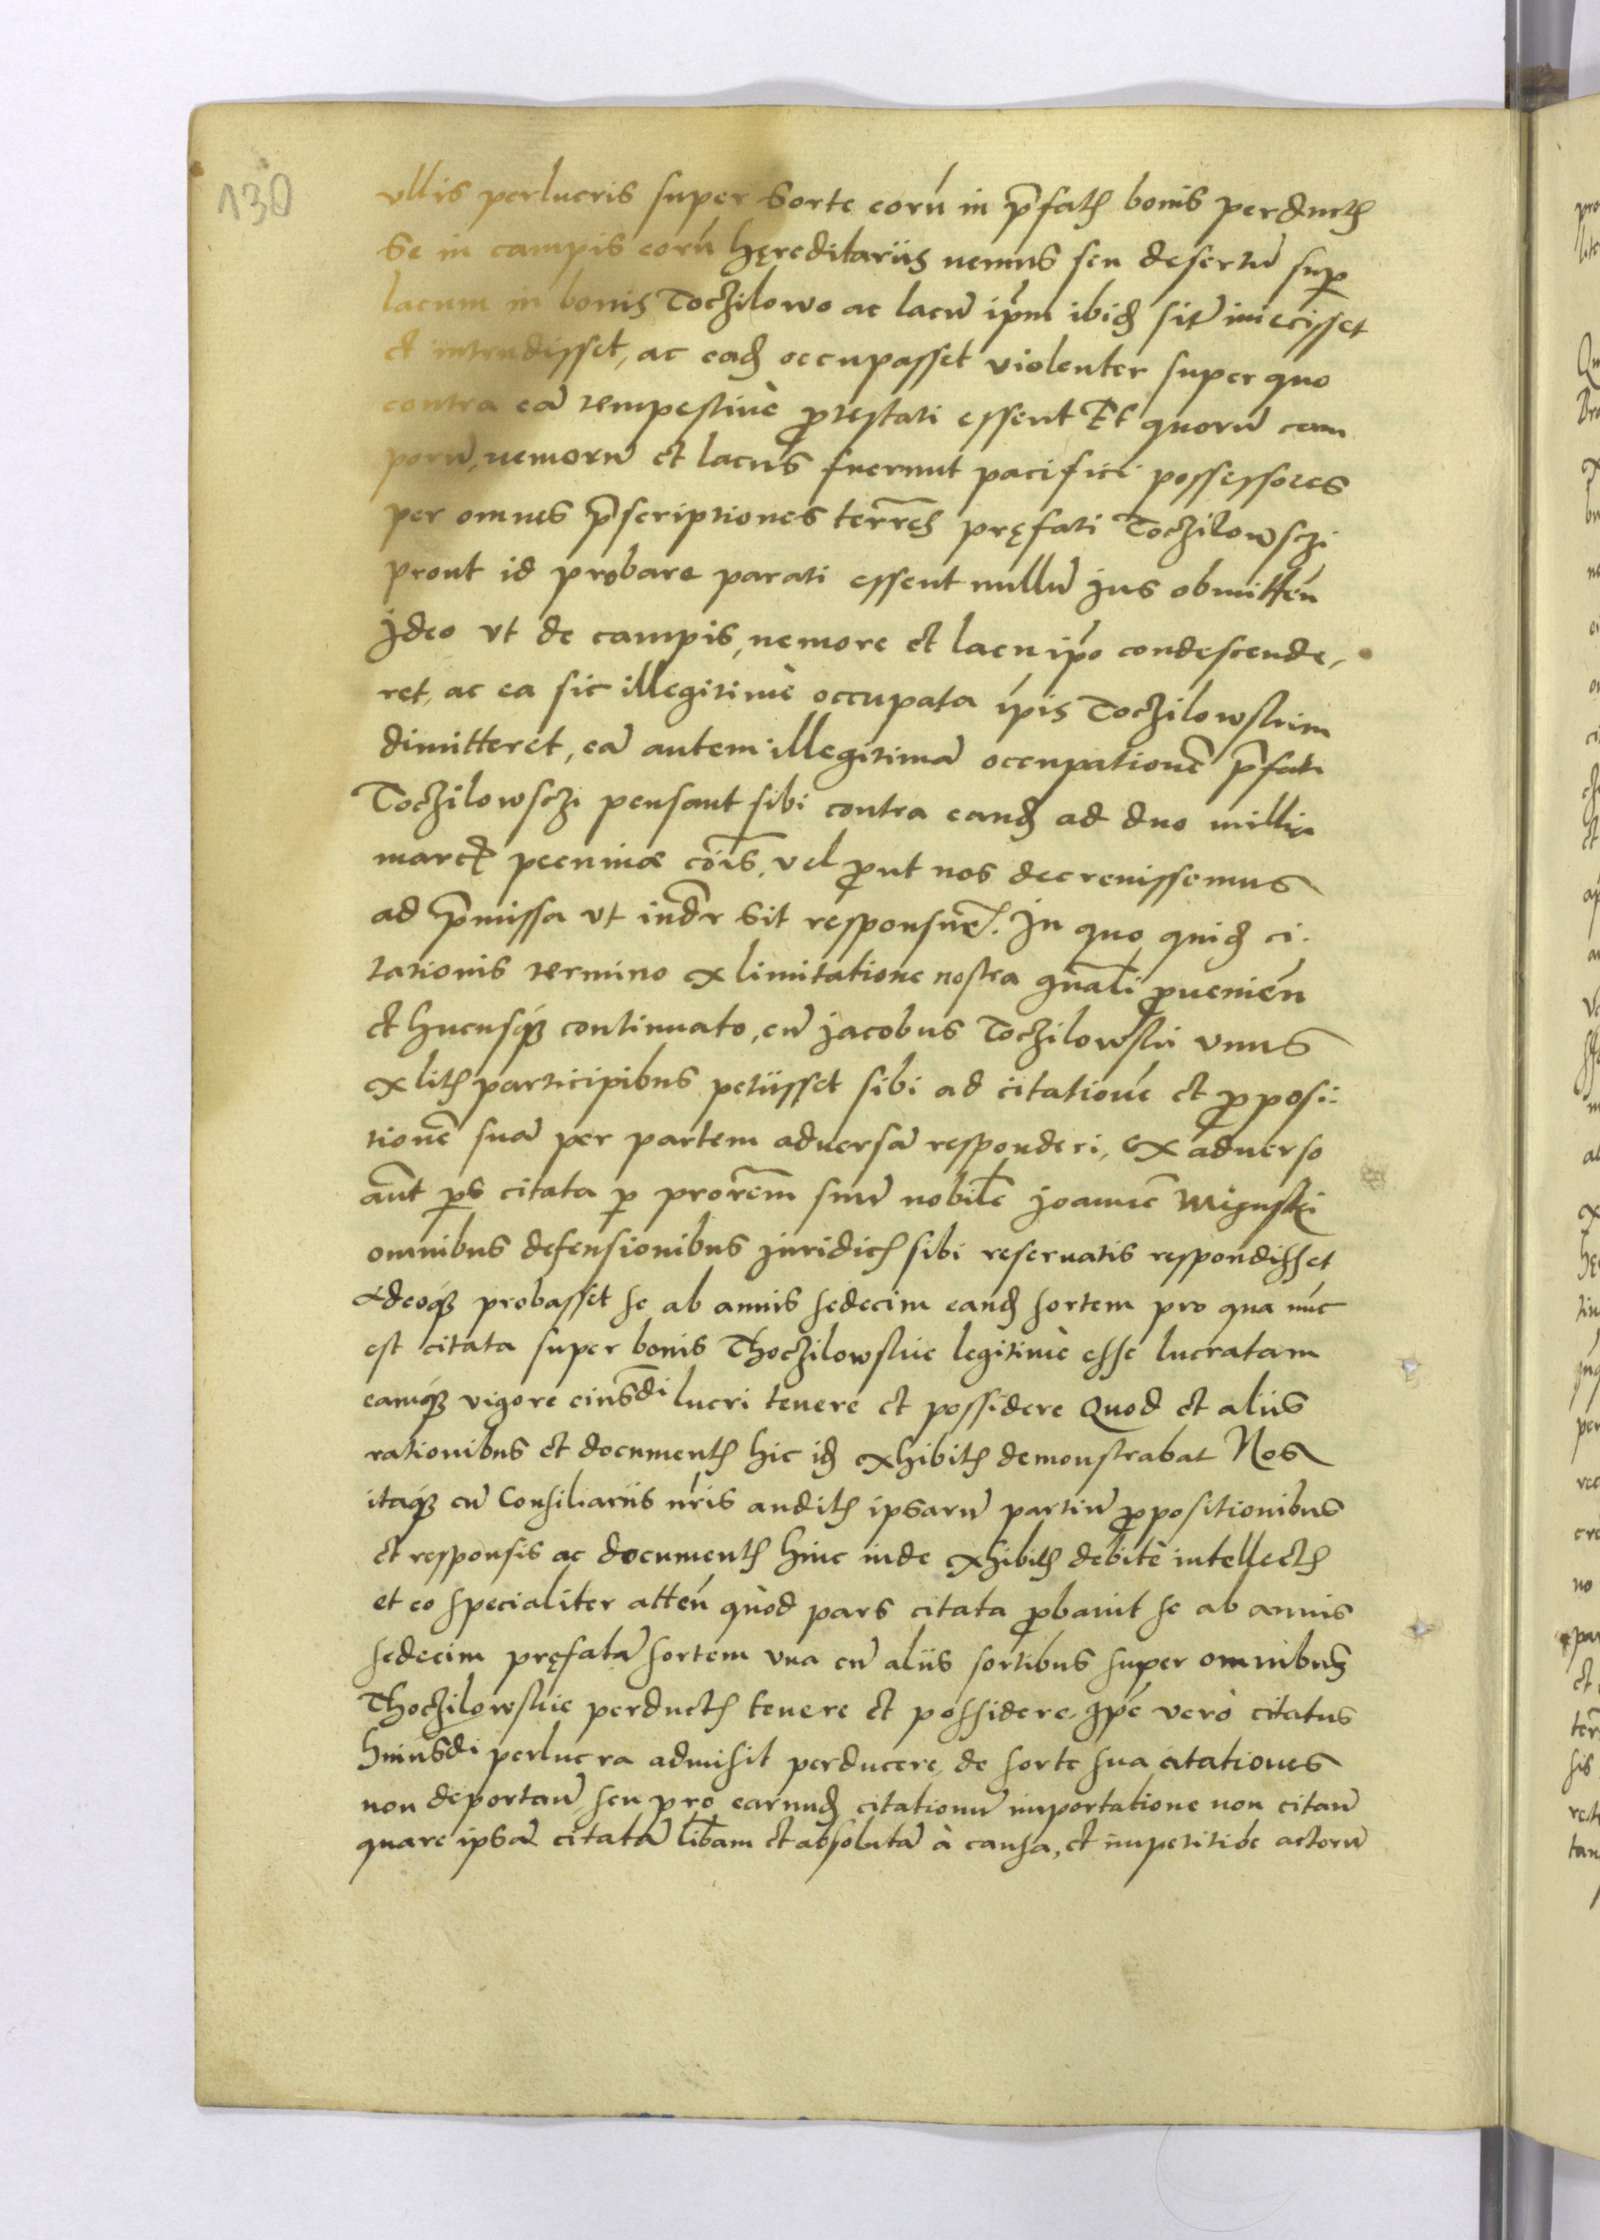 130
vllis perlucris super sorte eorū in p̄fatꝭ bonis perductꝭ
se in campis eorū hęreditariis nemus seu desertū sup̱
lacum in bonis Toczilowo ac lacū ip̄m ibidꝫ sitū iniecisset
et intrudisset, ac eadꝫ occupasset violenter super quo
contra eā tempestiuè ꝓtestati essent Et quorū cam
porū, nemorū et lacus fuerunt pacifici possessores
per omnes p̄scriptiones terr̄es pręfati Toczilowsczi
prout id probare parati essent nullū jus obmitteń
Jdeo vt de campis, nemore et lacu ip̄o condescende,
ret, ac ea sic illegitimè occupata ip̄is Toczilowskim
dimitteret, eā autem illegitimā occupationē p̄fati
Toczilowsczi pensant sibi contra eandꝫ ad duo millia
marcꝭ pecuniæ cōis, vel ꝓut nos decreuissemus
ad p̄missa vt indr̄ sit responsur̄. In quo quidꝫ ci.
tationis termino ex limitatione nostra gnāli ꝓuenień
et hucusqꝫ continuato, cū Jacobus Toczilowski vnus
ex litꝭ participibus petiisset sibi ad citationē et ꝓposi:
tionē suā per partem aduersā responderi, ex aduerso
aūt ꝑs citata ꝑ prorēm suū nobilē Joannē Mignski
omnibus defensionibus juridicꝭ sibi reseruatis respondisset
Adeoqꝫ probasset se ab annis sedecim eandꝫ sortem pro qua nūc
est citata super bonis Thoczilowskie legitimè esse lucratam
eamqꝫ vigore eiusdī lucri tenere et possidere Quod et aliis
rationibus et documentꝭ hic idꝫ exhibitꝭ demonstrabat Nos
itaqꝫ cū Consiliariis nr̄is auditꝭ ipsarū partiū ꝓpositionibus
et responsis ac documentꝭ hinc inde exhibitꝭ debitè intellectꝭ
et eo specialiter atteń quòd pars citata ꝓbauit se ab annis
sedecim pręfatā sortem vna cū aliis sortibus super omnibus
Thoczilowskie perductꝭ tenere et possidere, Ip̄e verò citatus
huiusdi perlucra admisit perducere, de sorte sua citationes
non deportań seu pro earundꝫ citationū importatione non citań
quare ipsā citatā lib̄am et absolutā à causa, et impetitiōe actorū